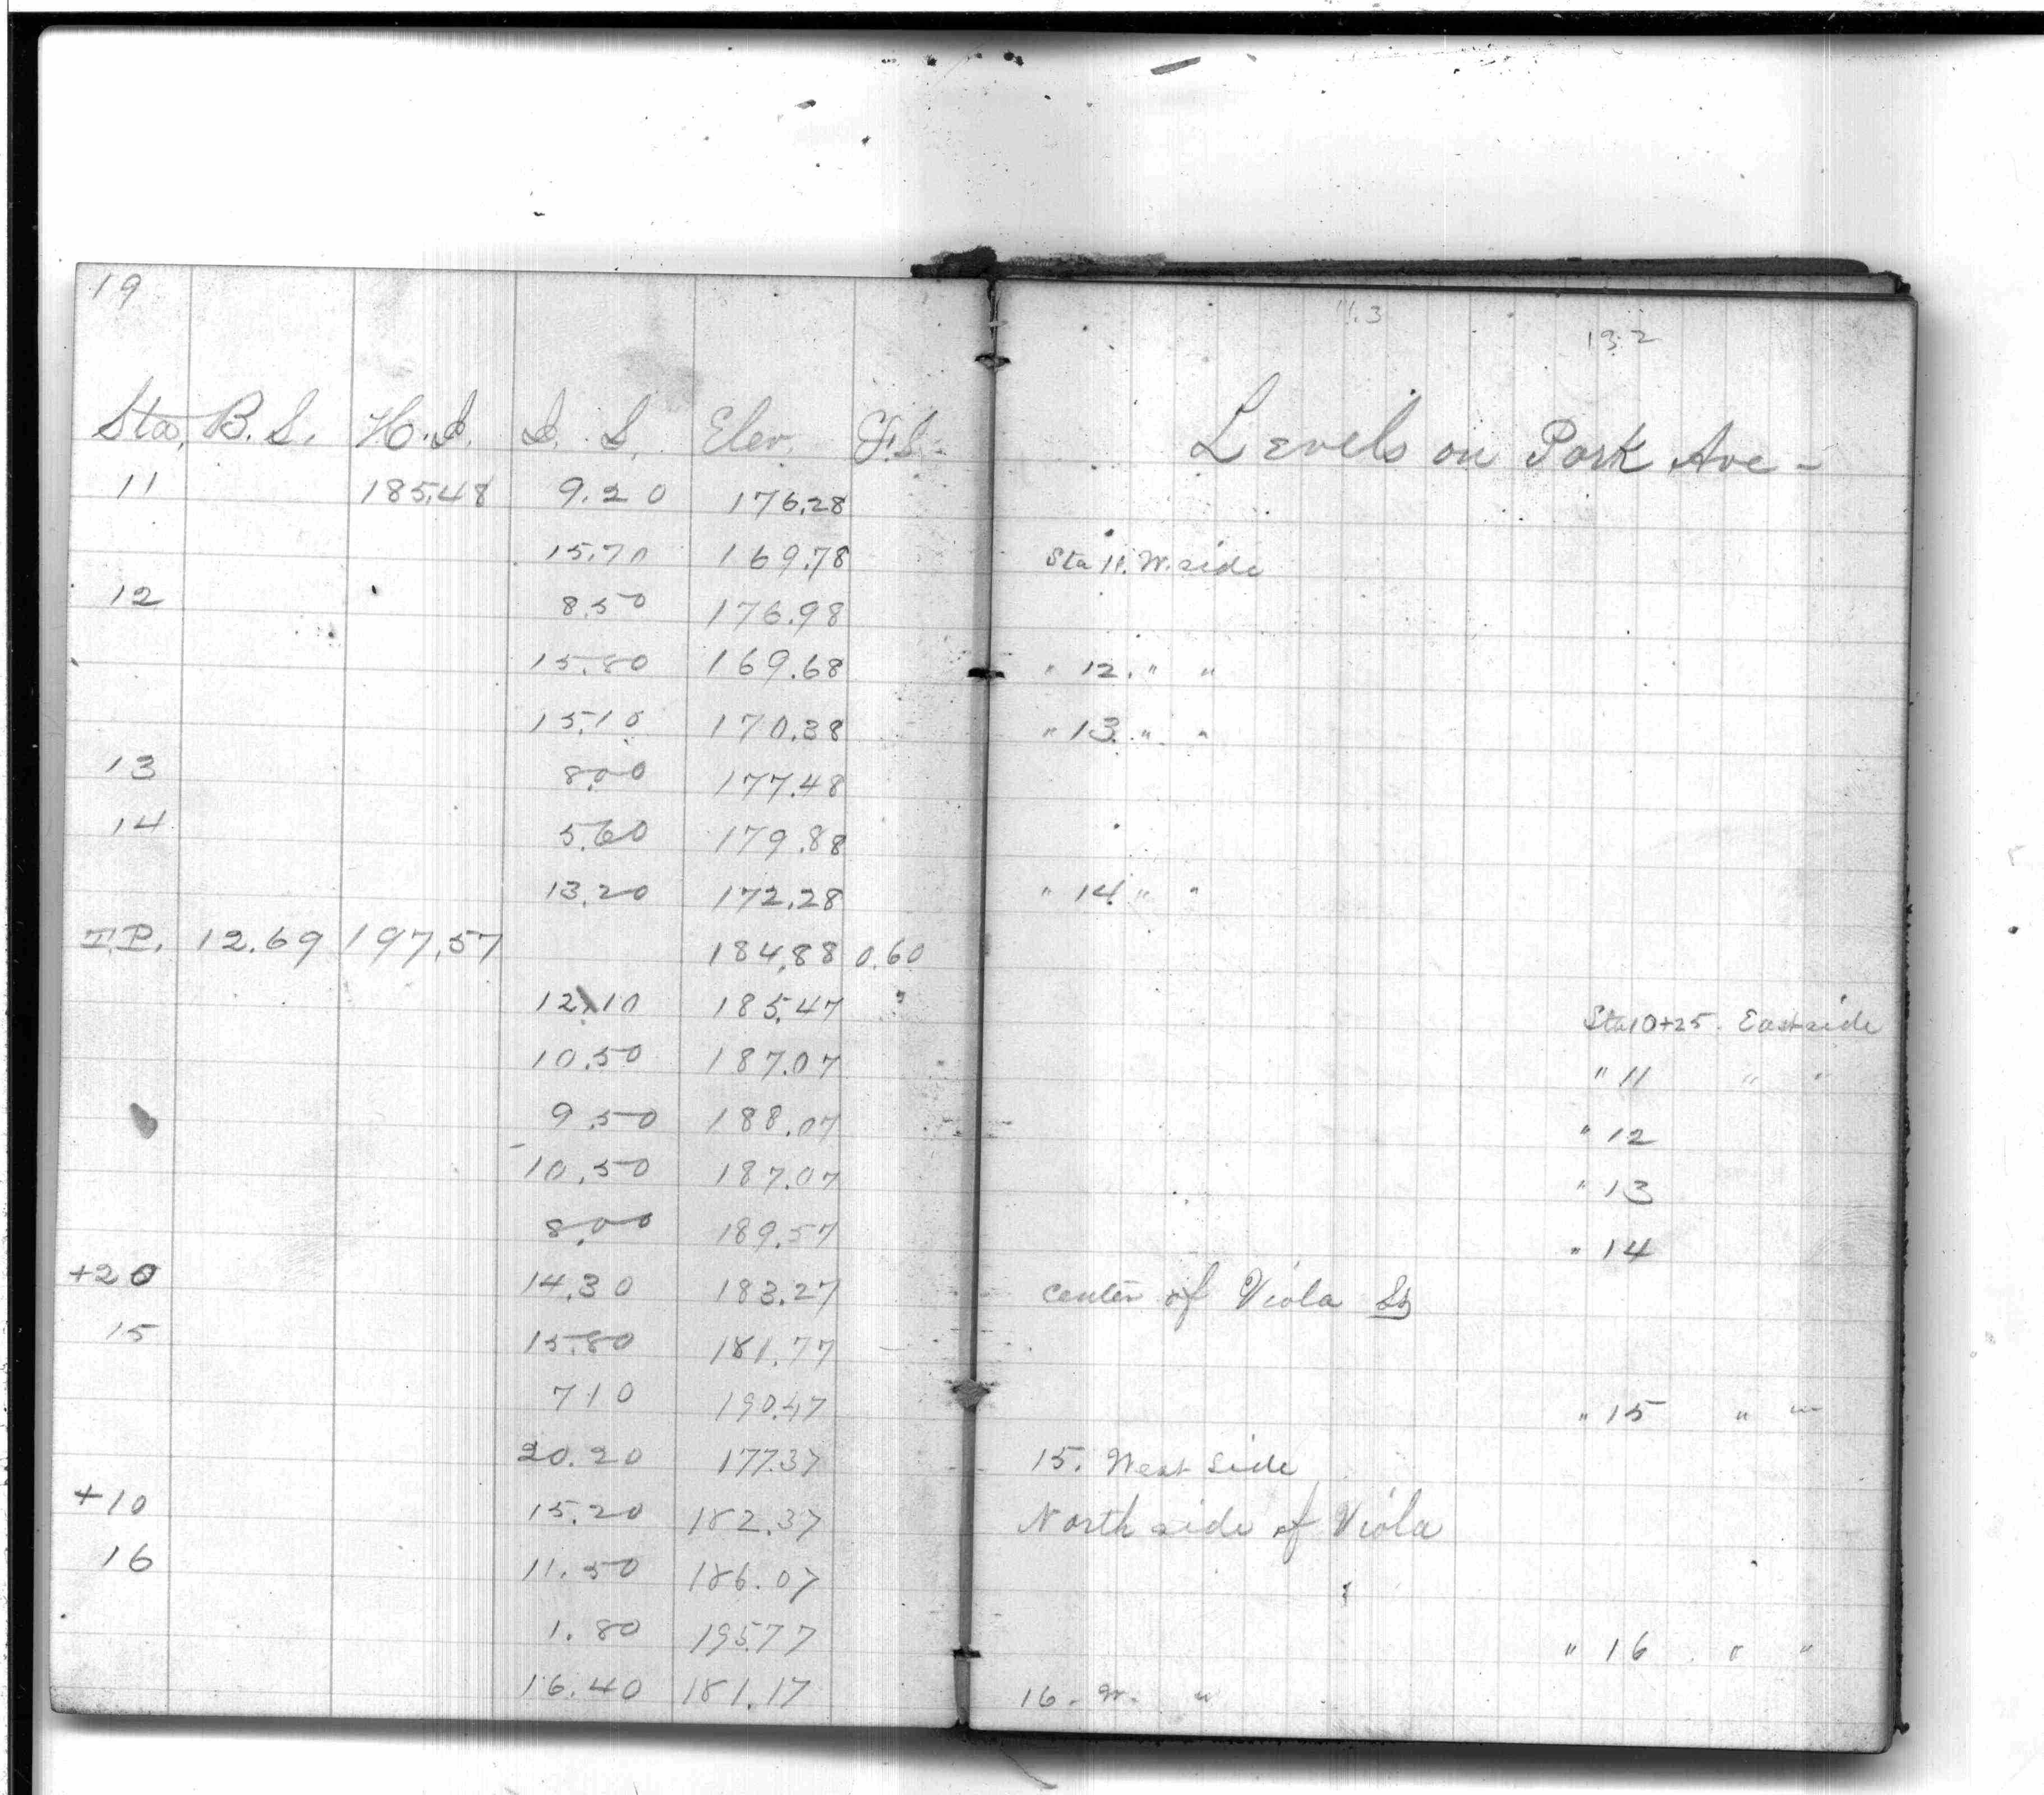 19
11.3
19.2
Sta. B.S. H.I. I.S. Elev. F.S.
Levels on Park Ave-
11 185.48 9.20 176.28
15.70 169.78 Sta 11. W. side
12 8.50 176.98
15.80 169.68 " 12. " "
15.10 170.38 " 13. " "
13 8.00 177.48
14 5.60 179.88
13.20 172.28 " 14 " "
T.P. 12.69 197.57 184.88 0.60
12.10 185.47 Sta 10+25. East side
10.50 187.07 " 11 " "
9.50 188.07 " 12
10.50 187.07 " 13
8.00 189.57 " 14
+20 14.30 183.27 center of Viola St
15 15.80 181.77
7 10 190.47 " 15 " "
20.20 177.37 15. West side
+10 15.20 182.37 North side of Viola
16 11.50 186.07
1.80 195.77 " 16 " "
16.40 181.17 16. W. "